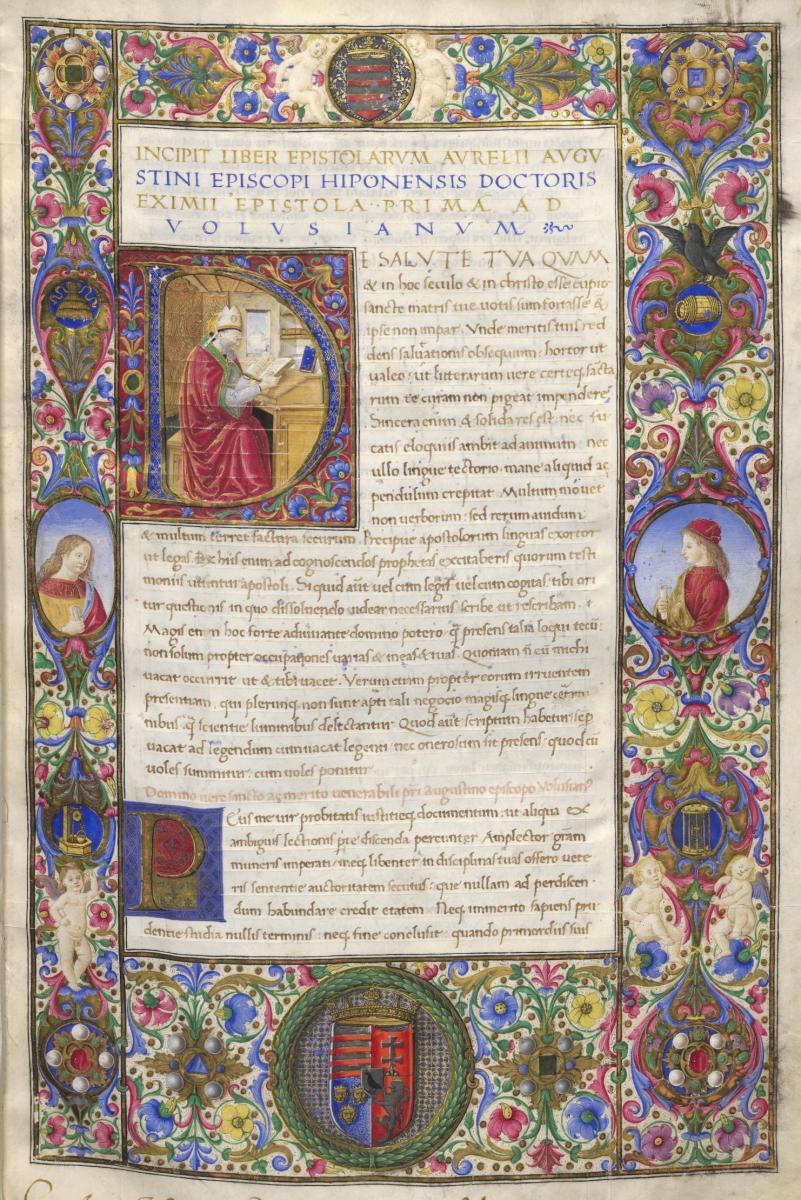 INCIPIT LIBER EPISTOLARVM AVRELII AVGV
STINI EPISCOPI HIPONENSIS DOCTORIS
EXIMII EPISTOLA PRIMA AD
VOLVSIANVM
DE SALVTE TVA QVAM
& in hoc seculo & in christo esse cupio
sancte matris tue votis sum fortasse &
ipse non impar. Vnde meritis tuis red
dens salutationis obsequium: hortor ut
valeo: ut litterarum vere certeq; sacra
rum te curam non pigeat impendere
Sincera enim & solida res est: nec fu
catis eloquiis ambit ad animum: nec
ullo lingue tectorio mane aliquid ac
pendulum crepitat. Multum movet
non verborum: sed rerum avidum
& multum terret factura securum. Precipue apostolorum linguas exhortor
ut legas. Ex his enim ad cognoscendos prophetas excitaberis quorum testi
moniis utuntur apostoli. Si quid aut vel cum legis vel cum cogitas tibi ori
tur questionis in quo dissolvendo videar necessarius scribe ut rescribam.
Magis enim hoc forte adiuvante domino potero: q presens talia loqui tecum
non solum propter occupationes varias & meas & tuas. Quoniam n cu michi
vacat occurrit ut & tibi vacet. Verum etiam propter eorum irruentem
presentiam, qui plerunq; non sunt apti tali negocio magisq; lingue certa
nibus q scientie luminibus delectantur. Quod aut scriptum habetur: sep
vacat ad legendum cum vacat legenti: nec onerosum fit presens: quod cu
voles sumitur: cum voles ponitur.
Domino vere sancto ac merito venerabili pri augustino episcopo Volusianus
PEtis me vir probitatis iustitieq; documentum: ut aliqua ex
ambiguis lectionis pte discenda percunter. Amplector gram
muneris imperati: meq; libenter in disciplinas tuas offero vete
ris sententie auctoritatem secutus: que nullam ad perdiscen
dum habundare credit etatem. Neq; immerito sapiens pru
dentie studia nullis terminis: neq; fine conclusit: quando primordiis suis